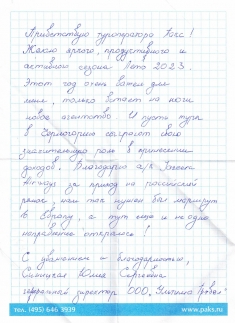 Приветствую туроператора Пакс!
Желаю яркого, продуктивного и
активного сезона Лето 2023.
Этот год очень важен для
меня, только встает на ноги
новое агентство. И пусть туры
в Черногорию сыграют свою
значительную роль в принесении
доходов. Благодарю а/к
за приход на российский
рынок, нам так нужен был маршрут
в Европу, а тут еще и не одно
направление открылось!
С уважением и благодарностью,
Юлия Сергеевна
генеральный директор ООО
тел. (495) 646 3939
www.paks.ru